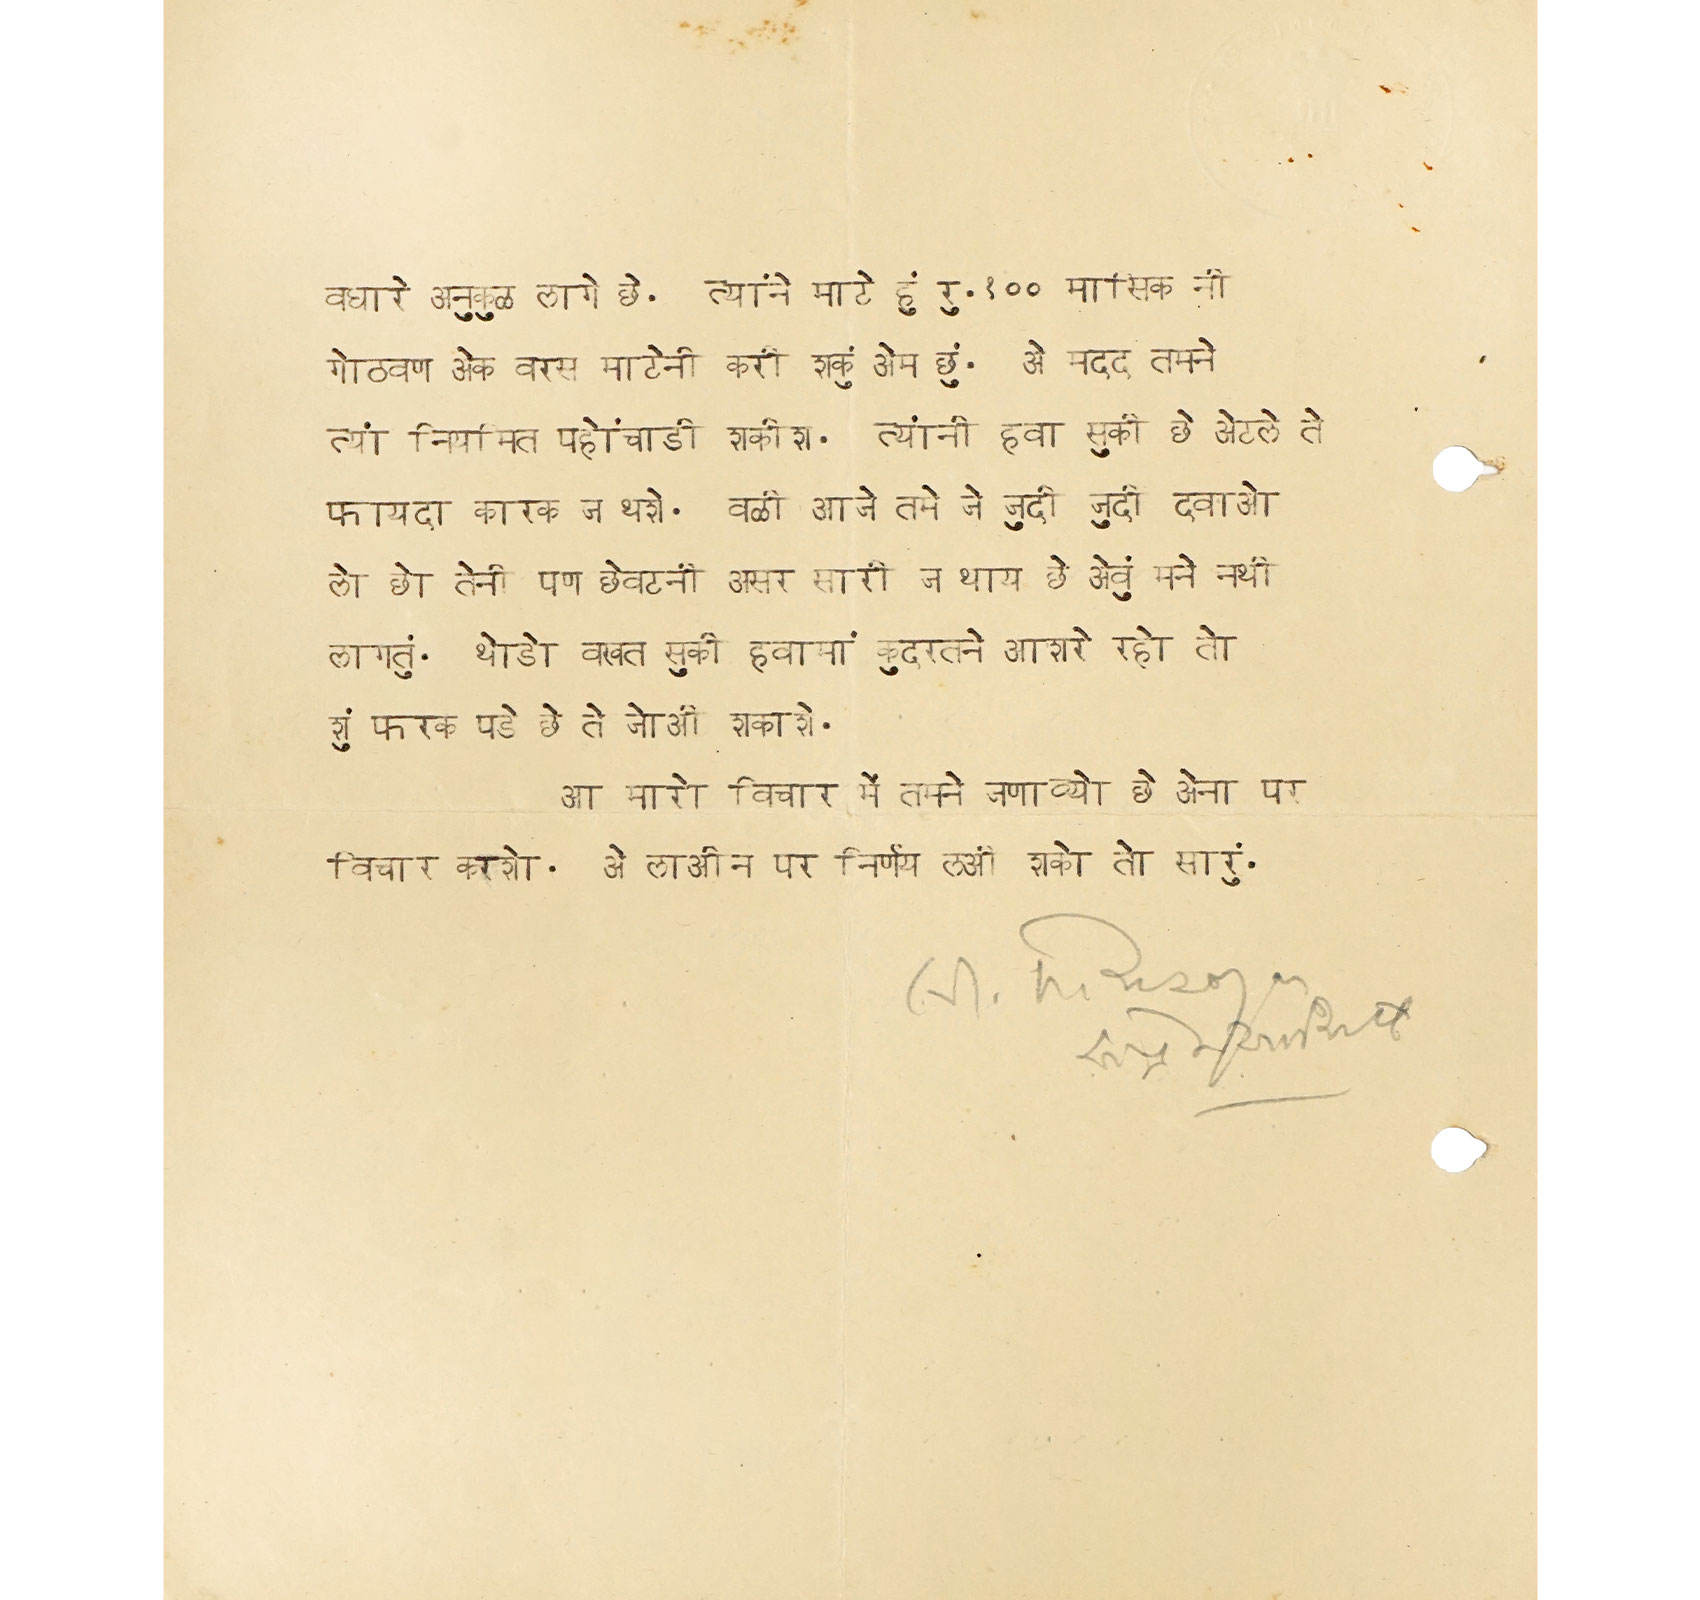 वधारे अनुकुळ लागे छे. त्यांने माटे हुं रु.१०० मासिक नी
गोठवण अेक वरस माटेनी करी शकुं अेम छुं. अे मदद तमने
त्यां नियमित पहोंचाडी शकीश. त्यांनी हवा सुकी छे अेटले ते
फायदा कारक ज थशे. वळी आजे तमे जे जुदी जुदी दवाओ
लो छो तेनी पण छेवटनी असर सारी ज थाय छे अेवुं मने नथी
लागतुं. थोडो वखत सुकी हवामां कुदरतने आशरे रहो तो
शुं फरक पडे छे ते जोअी शकाशे.
आ मारो विचार में तमने जणाव्यो छे अेना पर
विचार करशो. अे लाअीन पर निर्णय लअी शको तो सारुं.